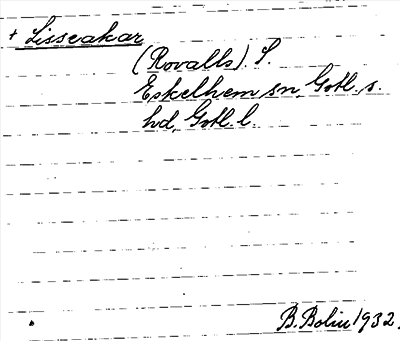 + Lisseakar
(Rovalls). S.
Eskelhem sn, Gotl. s.
hd, Gotl. l.
B. Bolin 1932.